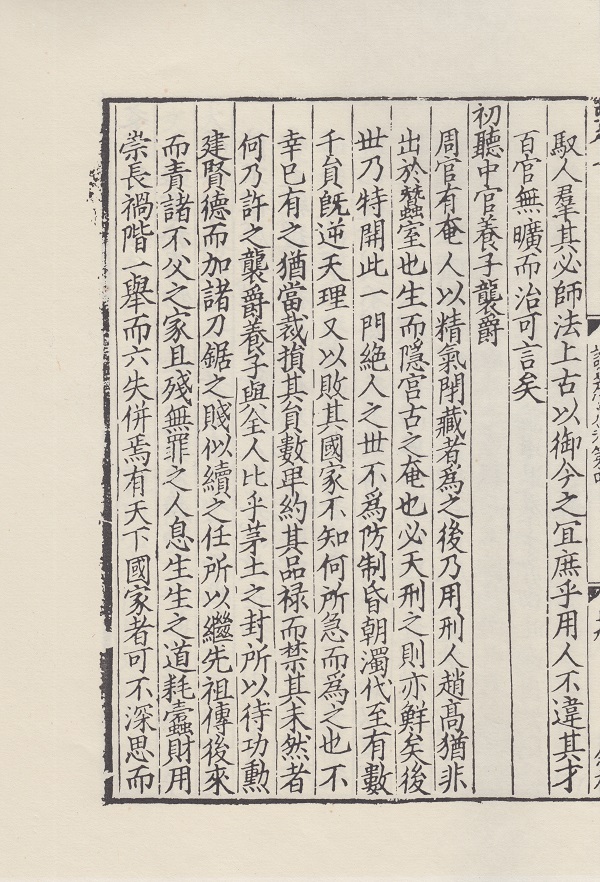 馭人羣其必師法上古以御今之冝庶乎用人不違其才
百官無曠而治可言矣
初聽中官養子襲爵
周官有奄人以精氣閉藏者爲之後乃用刑人趙高猶非
出於蠶室也生而隱宫古之奄也必天刑之則亦鮮矣後
丗乃特開此一門絶人之丗不爲防制昏朝濁代至有數
千貟旣逆天理又以敗其國家不知何所急而爲之也不
幸已有之猶當裁損其貟數卑約其品禄而禁其未然者
何乃許之襲爵養子與全人比乎茅土之封所以待功勲
建賢德而加諸刀鋸之賤似續之任所以繼先祖傳後來
而責諸不父之家且殘無罪之人息生生之道耗蠧財用
崇長禍階一舉而六失併焉有天下國家者可不深思而